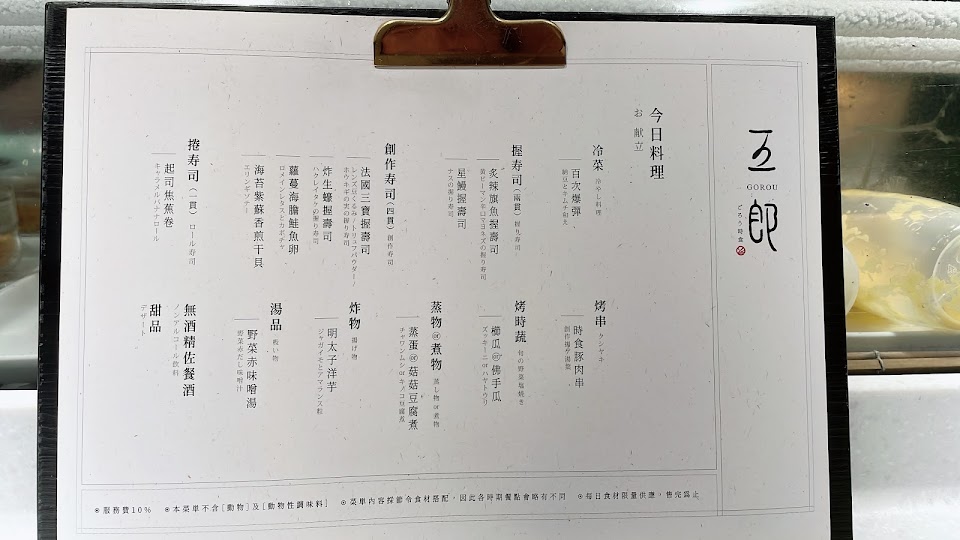 五郎
GOROU
ごろう時食
今日料理
お献立
冷菜 冷やし料理
百次爆彈
納豆とキムチ和え
握壽司(兩貫)握り寿司
炙辣旗魚握壽司
黄ピーマン辛口マヨネズの握り寿司
星鰻握壽司
ナスの握り寿司
創作壽司(四貫)創作寿司
法國三寶握壽司
レンズ豆くるみ/トリュフパウダー/
ホウキギの実の握り寿司
炸生蠔握壽司
ハクレイタケの握り寿司
蘿蔓海膽鮭魚卵
ロメインレタスとカボチャ
海苔紫蘇香煎干貝
エリンギソテー
捲壽司(一貫)ロール寿司
起司焦蕉卷
キャラメルバナナロール
烤串 クシヤキ
時食豚肉串
創作揚げ湯葉
烤時蔬 旬の野菜塩焼き
櫛瓜or佛手瓜
ズッキーニorハヤトウリ
蒸物or煮物 蒸し物or煮物
蒸蛋or菇菇豆腐煮
チャワンムシorキノコ豆腐煮
炸物 揚げ物
明太子洋芋
ジャガイモとアマランス粒
湯品 吸い物
野菜赤味噌湯
野菜赤だし味噌汁
無酒精佐餐酒
ノンアルコール飲料
甜品
デザート
⊙服務費10% ⊙本菜單不含[動物]及[動物性調味料] ⊙菜單內容採節令食材搭配,因此各時期餐點會略有不同 ⊙每日食材限量供應,售完為止